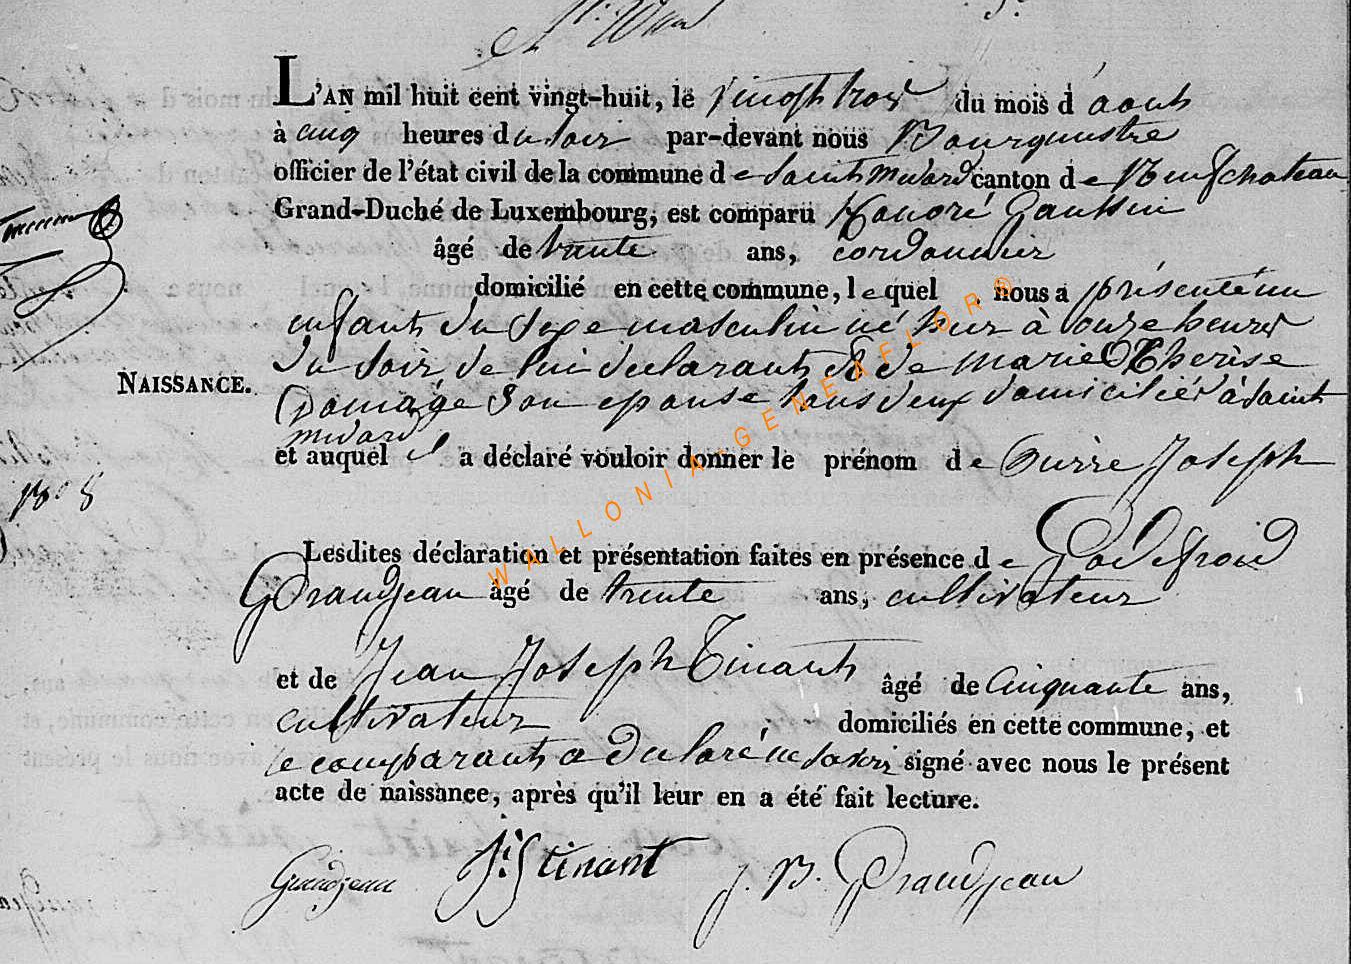 L'AN mil huit cent vingt-huit, le vingt trois du mois d'aout
à cinq heures du soir par-devant nous Bourguestre
officier de l'état civil de la commune de Saint Medard canton de Neufchateau
Grand-Duché de Luxembourg, est comparu Honoré Gaussin
âgé de trente ans, cordonnier
domicilié en cette commune, lequel nous a présenté un
enfant du sexe masculin né hier à onze heures
du soir de lui declarant & de Marie Therèse
Domage son epouse tous deux domiciliés à Saint
medard
NAISSANCE.
et auquel il a déclaré vouloir donner le prénom de Pierre Joseph
Lesdites déclaration et présentation faites en présence de Godefroid
Grandjean âgé de trente ans, cultivateur
et de Jean Joseph Tinant âgé de Cinquante ans,
cultivateur domiciliés en cette commune, et
le comparant a declaré ne savoir signé avec nous le présent
acte de naissance, après qu'il leur en a été fait lecture.
Grandjean J. J. tinant J. B. Grandjean
WALLONIA-GENEAFLOR®